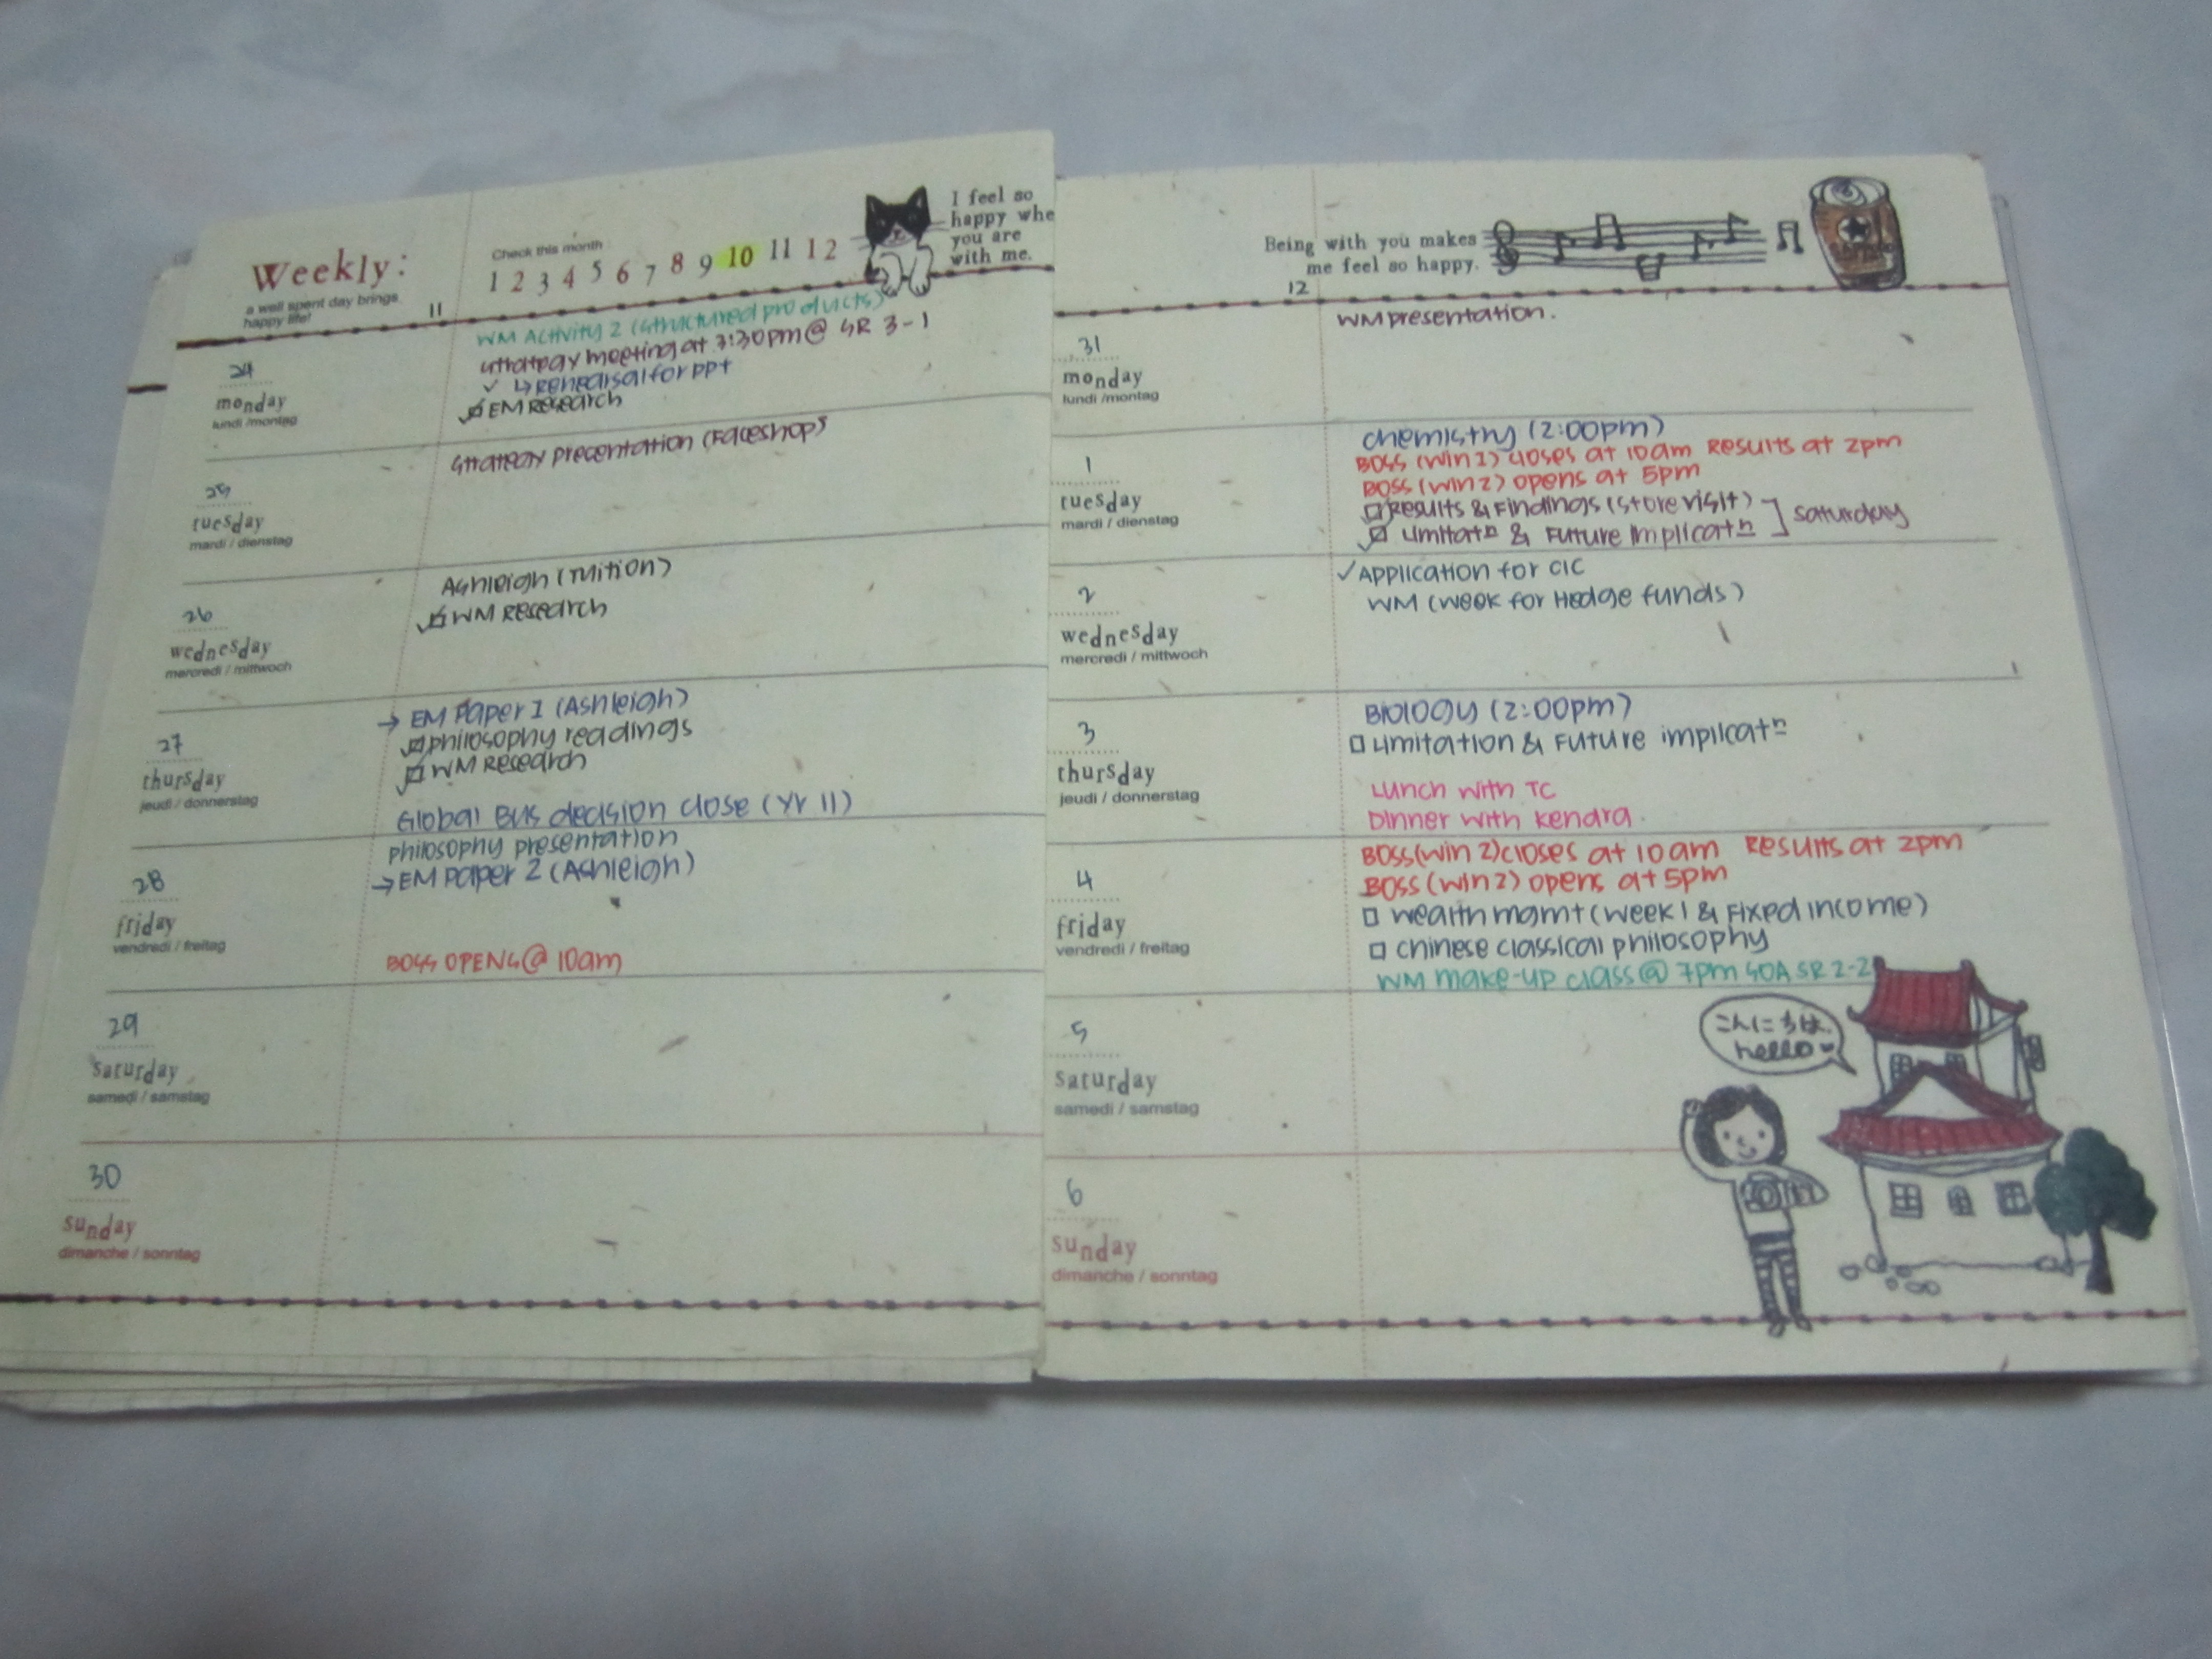 Weekly:
a well spent day brings
happy life!
11
Check this month
1 2 3 4 5 6 7 8 9 10 11 12
I feel so
happy whe
you are
with me.
WM Activity 2 (structured products)
24
monday
lundi /montag
strategy meeting at 3:30pm @ SR 3-1
✓ ↳ Rehearsal for ppt
☑ EM Research
25
tuesday
mardi / dienstag
strategy presentation (Faceshop)
26
wednesday
mercredi / mittwoch
Ashleigh (Tuition)
☑ WM Research
27
thursday
jeudi / donnerstag
→ EM Paper 1 (Ashleigh)
☑ philosophy readings
☑ WM Research
Global Bus decision close (Yr 11)
28
friday
vendredi / freitag
philosophy presentation
→ EM Paper 2 (Ashleigh)
BOSS OPENS @ 10am
29
saturday
samedi / samstag
30
sunday
dimanche / sonntag
Being with you makes
me feel so happy.
12
31
monday
lundi /montag
WM presentation.
1
tuesday
mardi / dienstag
Chemistry (2:00pm)
BOSS (Win 1) closes at 10am Results at 2pm
BOSS (Win 2) opens at 5pm
☑ Results & Findings (store visit)
☑ Limitatn & Future Implicatn ] Saturday
2
wednesday
mercredi / mittwoch
✓ Application for CIC
WM (Week for Hedge funds)
3
thursday
jeudi / donnerstag
Biology (2:00pm)
☐ Limitation & Future implicatn
Lunch with TC
Dinner with Kendra.
4
friday
vendredi / freitag
BOSS (Win 2) closes at 10am Results at 2pm
BOSS (Win 2) opens at 5pm
☐ Wealth mgmt (week 1 & Fixed income)
☐ Chinese classical philosophy
WM make-up class @ 7pm SOA SR 2-2
5
saturday
samedi / samstag
こんにちは.
hello
6
sunday
dimanche / sonntag